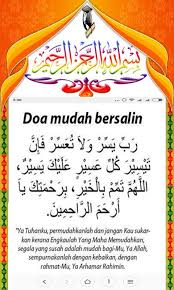 بسم الله الرحمن الرحيم
Doa mudah bersalin
رَبِّ يَسِّرْ وَلَا تُعَسِّرْ فَإِنَّ
تَيْسِيْرَ كُلِّ عَسِيْرٍ عَلَيْكَ يَسِيْرٌ،
اَللّٰهُمَّ تَمِّمْ بِالْخَيْرِ، بِرَحْمَتِكَ يَا
أَرْحَمَ الرَّاحِمِيْنَ.
"Ya Tuhanku, permudahkanlah dan jangan Kau sukar-
kan kerana Engkaulah Yang Maha Memudahkan,
segala yang susah adalah mudah bagi-Mu, Ya Allah,
sempurnakanlah dengan kebaikan, dengan
rahmat-Mu, Ya Arhamar Rahimin.